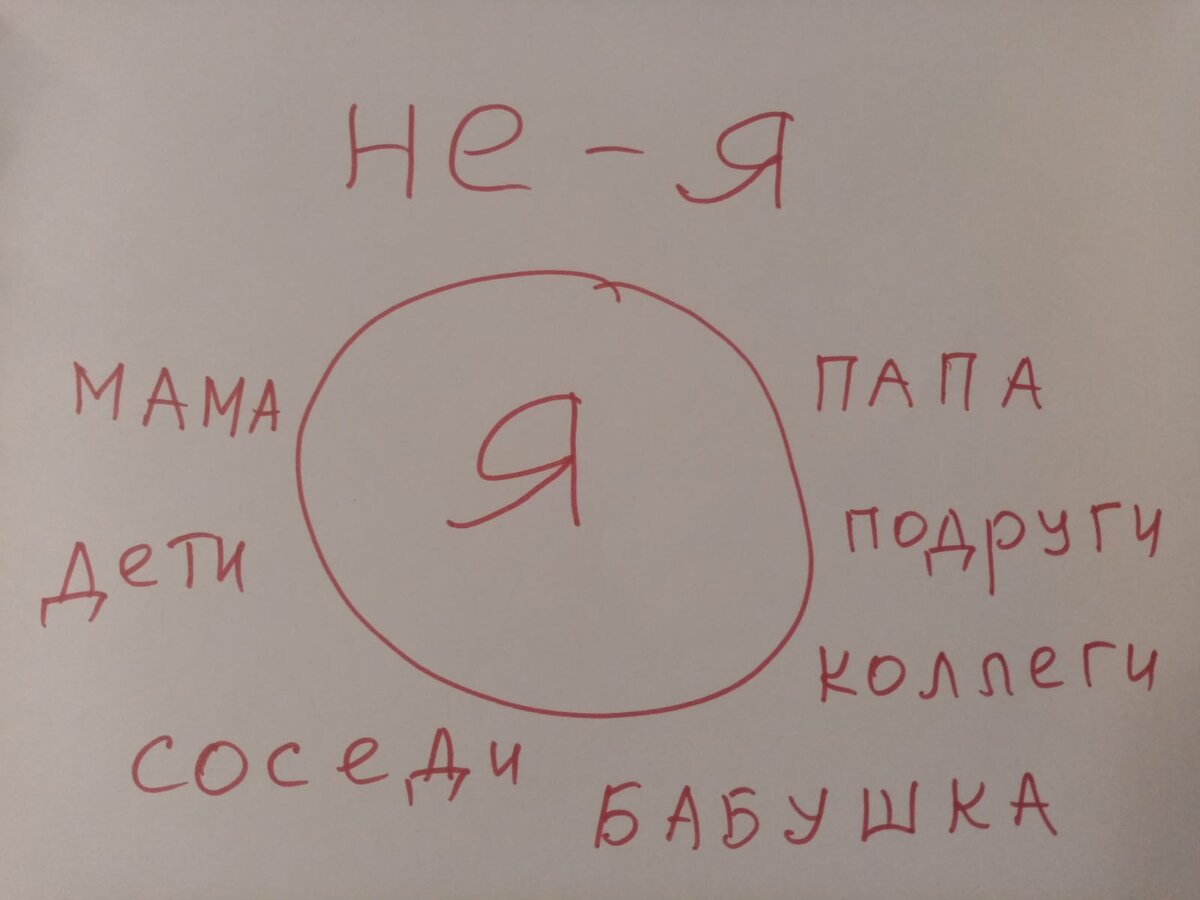 не - я
МАМА
ПАПА
Я
дети
подруги
коллеги
соседи
БАБУШКА